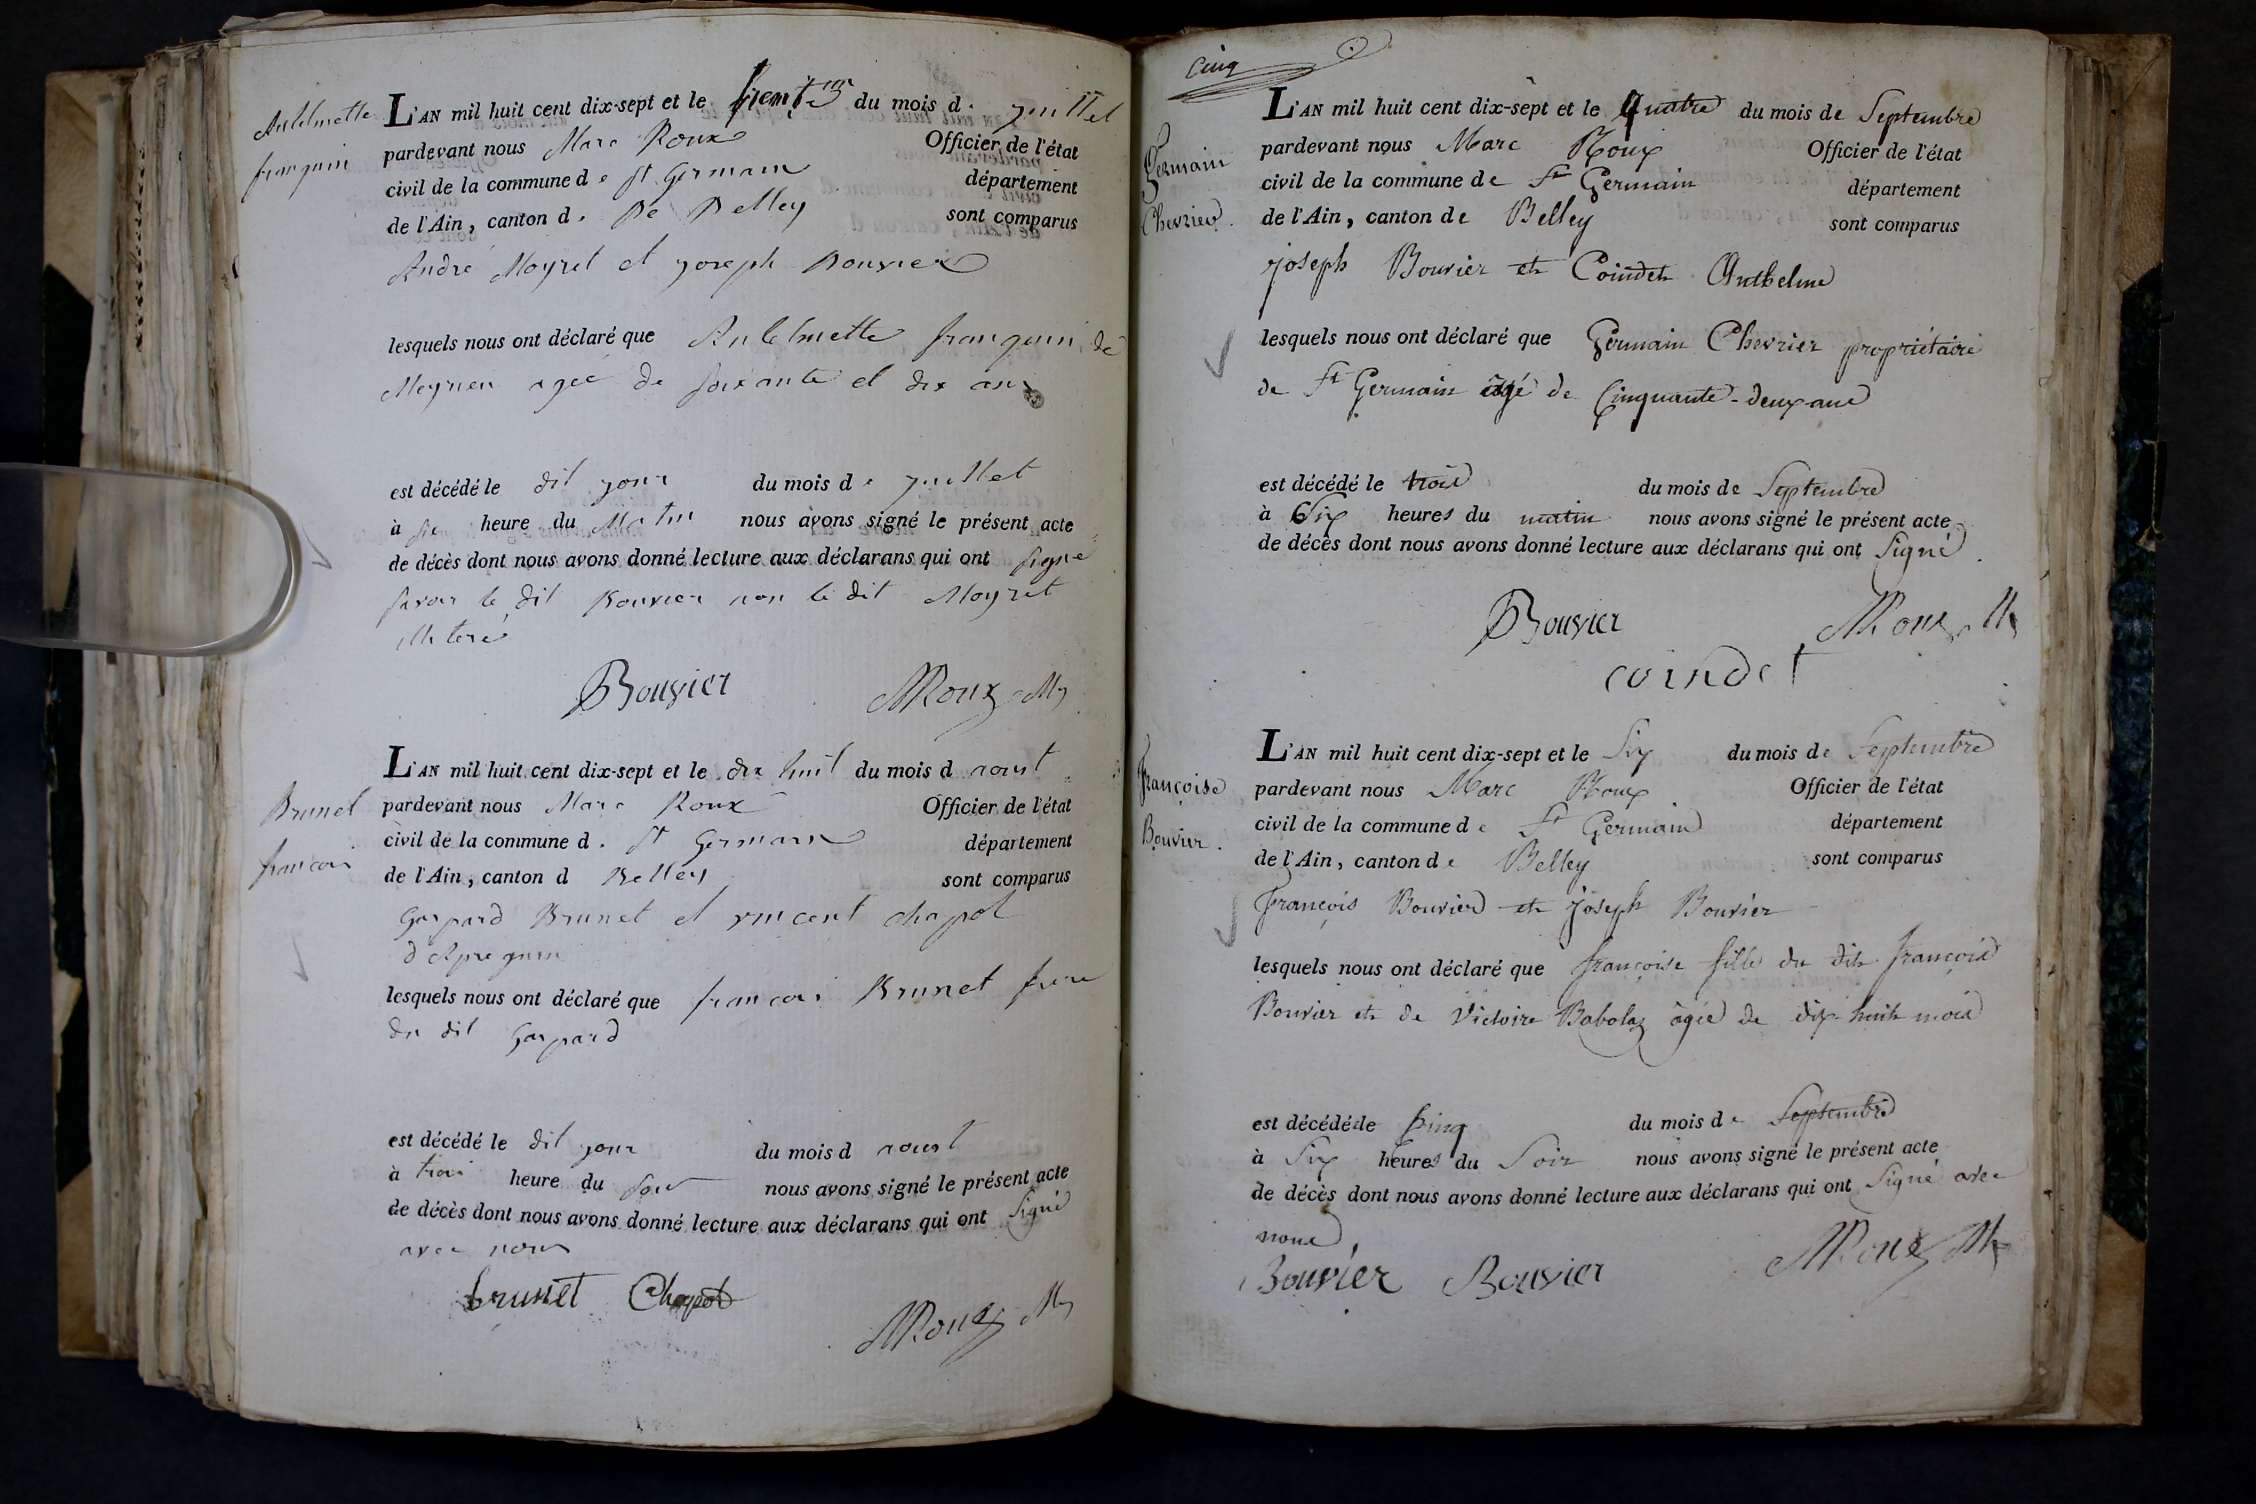 Anthelmette
franquin
L'AN mil huit cent dix-sept et le trente du mois d. juillet
pardevant nous Marc Roux Officier de l'état
civil de la commune de St Germain département
de l'Ain, canton d. De Belley sont comparus
André Moyret et joseph Bouvier
lesquels nous ont déclaré que Anthelmette franquin de
Meyrieu agée de soixante et dix ans
est décédé le dit jour du mois de juillet
à six heure du Matin nous avons signé le présent acte
de décès dont nous avons donné lecture aux déclarans qui ont signé
savoir le dit Bouvier non le dit Moyret
illiteré
Bouvier MRoux M
Brunet
francois
L'AN mil huit cent dix-sept et le dix huit du mois d aoust
pardevant nous Marc Roux Officier de l'état
civil de la commune d. St Germain département
de l'Ain, canton d Belley sont comparus
Gaspard Brunet et vincent chapot
d'Apregnin
lesquels nous ont déclaré que francois Brunet frere
du dit Gaspard
est décédé le dit jour du mois d aoust
à trois heure du soir nous avons signé le présent acte
de décès dont nous avons donné lecture aux déclarans qui ont signé
avec nous
brunet Chapot
MRoux M
Cinq
Germain
Chevrier.
L'AN mil huit cent dix-sept et le quatre du mois de Septembre
pardevant nous Marc Roux Officier de l'état
civil de la commune de St Germain département
de l'Ain, canton de Belley sont comparus
joseph Bouvier et Coindet Anthelme
lesquels nous ont déclaré que Germain Chevrier propriétaire
de St Germain âgé de Cinquante-deux ans
est décédé le trois du mois de Septembre
à Six heures du matin nous avons signé le présent acte
de décès dont nous avons donné lecture aux déclarans qui ont Signé.
Bouvier MRoux M
coindet
françoise
Bouvier.
L'AN mil huit cent dix-sept et le Six du mois de Septembre
pardevant nous Marc Roux Officier de l'état
civil de la commune de St Germain département
de l'Ain, canton de Belley sont comparus
François Bouvier et joseph Bouvier
lesquels nous ont déclaré que françoise fille du dit françois
Bouvier et de Victoire Babolaz âgée de dix-huit mois
est décédéele Cinq du mois de Septembre
à Six heures du Soir nous avons signé le présent acte
de décès dont nous avons donné lecture aux déclarans qui ont Signé avec
nous.
Bouvier Bouvier MRoux M